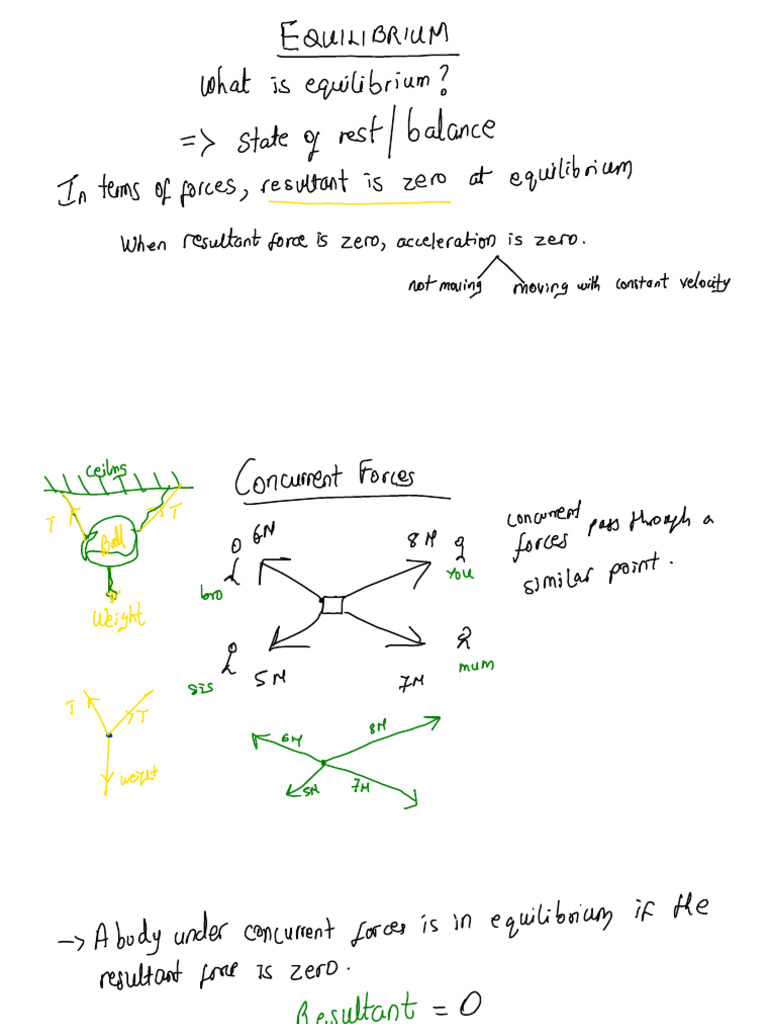 EQUILIBRIUM
What is equilibrium?
=> state of rest/balance
In terms of forces, resultant is zero at equilibrium
When resultant force is zero, acceleration is zero.
not moving
moving with constant velocity
ceilng
Concurrent Forces
T
T
Ball
Weight
6N
8N
bro
you
concurrent
forces pass through a
similar point.
sis
5N
7N
mum
T
T
weight
6N
8N
5N
7N
-> A body under concurrent forces is in equilibrium if the
resultant force is zero.
Resultant = 0